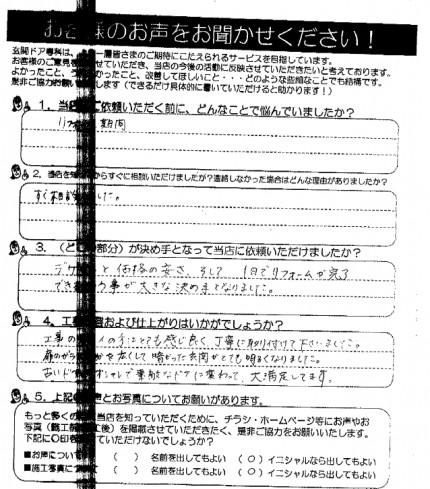 お客様のお声をお聞かせください！
玄関ドア専科は、 一層皆さまのご期待にこたえられるサービスを目指しています。
お客様のご意見を させていただき、当店の今後の活動に反映させていただきたいと考えております。
よかったこと、 かったこと、改善してほしいこと・・・どのような些細なことでも結構です。
是非ご協力お願い します（できるだけ具体的に書いていただけると助かります！）
1. 当店 ご依頼いただく前に、どんなことで悩んでいましたか？
期間
2. 当店を知 からすぐに相談いただけましたか？連絡しなかった場合はどんな理由がありましたか？
すぐ相談 した。
3. （ど 部分）が決め手となって当店に依頼いただけましたか？
デザ と価格の安さ、そして 1日でリフォームが完了
でき う事が大きな決め手となりました。
4. 工事 容および仕上がりはいかがでしょうか？
工事の 方はとても感じ良く、丁寧に取り付けて下さいました。
扉のガラ を広くして暗かった玄関がとても明るくなりました。
古いド オシャレで素敵なドアに変わって、大満足してます。
5. 上記 声とお写真についてお願いがあります。
もっと多くの 当店を知っていただくために、チラシ・ホームページ等にお声やお
写真（施工前 工後）を掲載させていただきたく、是非ご協力をお願いいたします。
下記に〇印を ていただけないでしょうか？
■お声につい （ ） 名前を出してもよい （〇）イニシャルなら出してもよい
■施工写真に て （ ） 名前を出してもよい （〇）イニシャルなら出してもよい